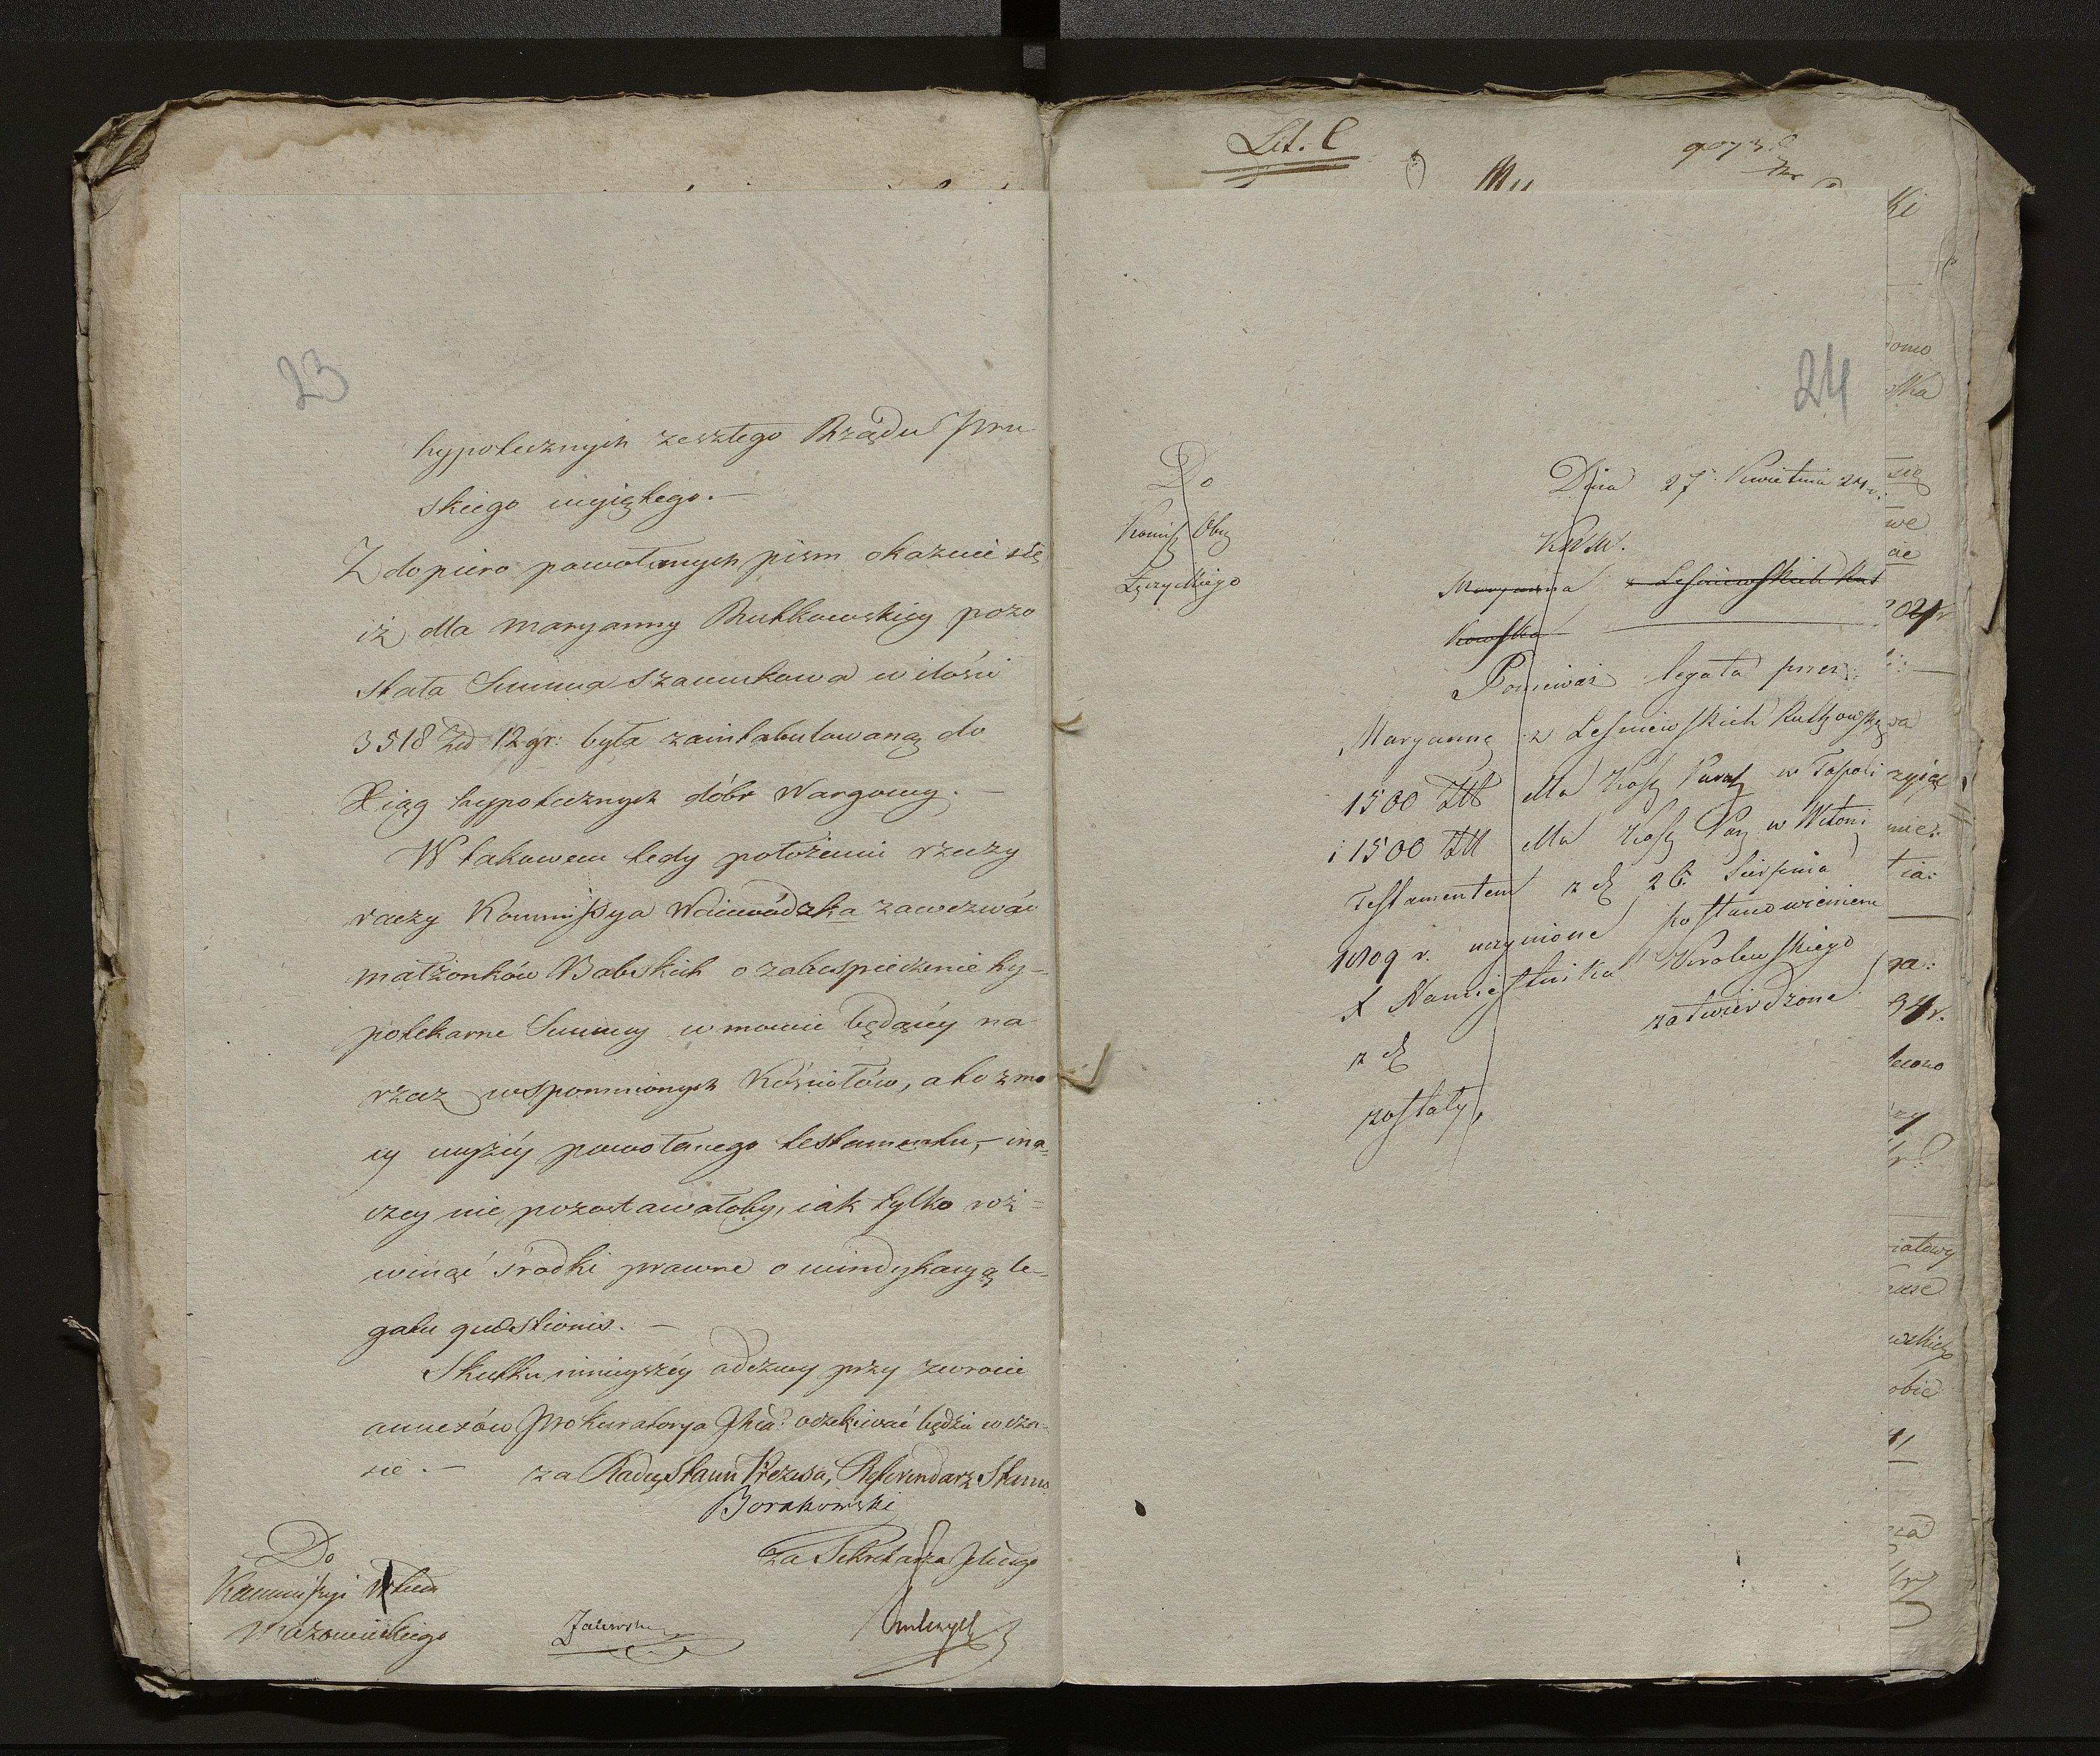 23
hypotecznych zeszłego Rządu Pru
skiego wyiętego. —
Z dopiero powołanych pism okazuie się
iż dla Maryanny Rutkowskiey pozo
stała Summa szacunkowa w ilości
3518 Złt 12 gr: była zaintabulowaną do
Xiąg hypotecznych dóbr Wargowy. —
W takowem tedy położeniu rzeczy
raczy Kommissya Woiewódzka zawezwać
małżonków Babskich o zabespieczenie hy-
potekarne Summy w mowie będącéy na
rzecz wspomnionych Kościołów, a to z mo
cy wyżéy powołanego testamentu, — ina=
czey nie pozostawałoby, iak tylko roz=
winąć środki prawne o windykacyą le=
gatu quaestionis. —
Skutku ninieyszéy odezwy przy zwrocie
annexów Prokuratorya oczekiwać będzie w cza-
sie. — za Radcę Stanu Prezesa, Referendarz Stanu
Borakowski
za Sekretarza
Do
Kommissyi
Mazowieckiego
Lit. C
24
Do
Komiss Obw
Łęczyckiego
Dnia 27 Kwietnia 24 r.
K.W.M.
Maryanna z Leśniewskich Rut
kowska
Ponieważ legata przez
Maryannę z Leśniewskich Rutkowską
1500 Złt dla Kość w Topoli
i 1500 Złt dla Kość Par w Witoni
Testamentem z d 26 Sierpnia
1809 r. uczynione postanowieniem
X Namiestnika Krolewskiego
z d zatwierdzone
zostały,